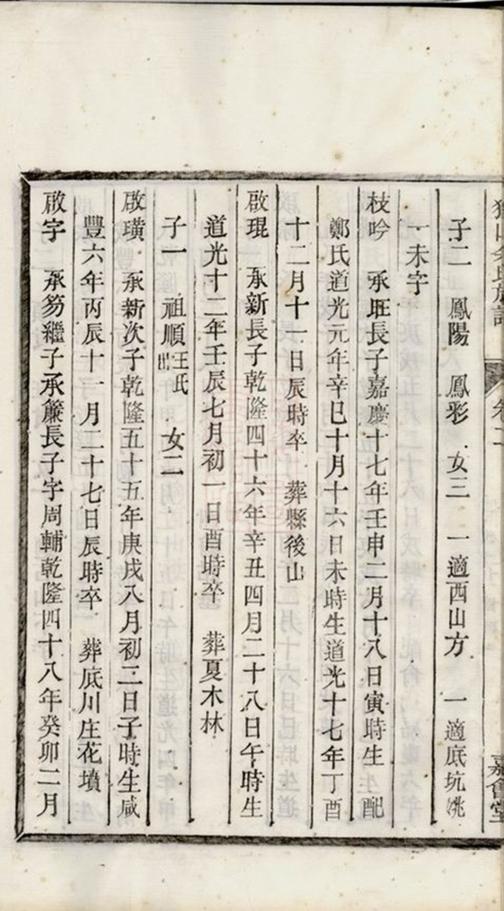 余氏族譜
卷二
嘉會堂
子二　鳳陽　鳳彩　女三　一適西山方　一適底坑姚
一未字
枝吟　承旺長子嘉慶十七年壬申二月十八日寅時生　配
鄭氏道光元年辛巳十月十六日未時生道光十七年丁酉
十二月十一日辰時卒　葬縣後山
啟琨　承新長子乾隆四十六年辛丑四月二十八日午時生
道光十二年壬辰七月初一日酉時卒　葬夏木林
子一　祖順汪氏出　女二
啟璜　承新次子乾隆五十五年庚戌八月初二日子時生咸
豐六年丙辰十一月二十七日辰時卒　葬底川庄花墳
啟字　承笏繼子承簾長子字周輔乾隆四十八年癸卯二月